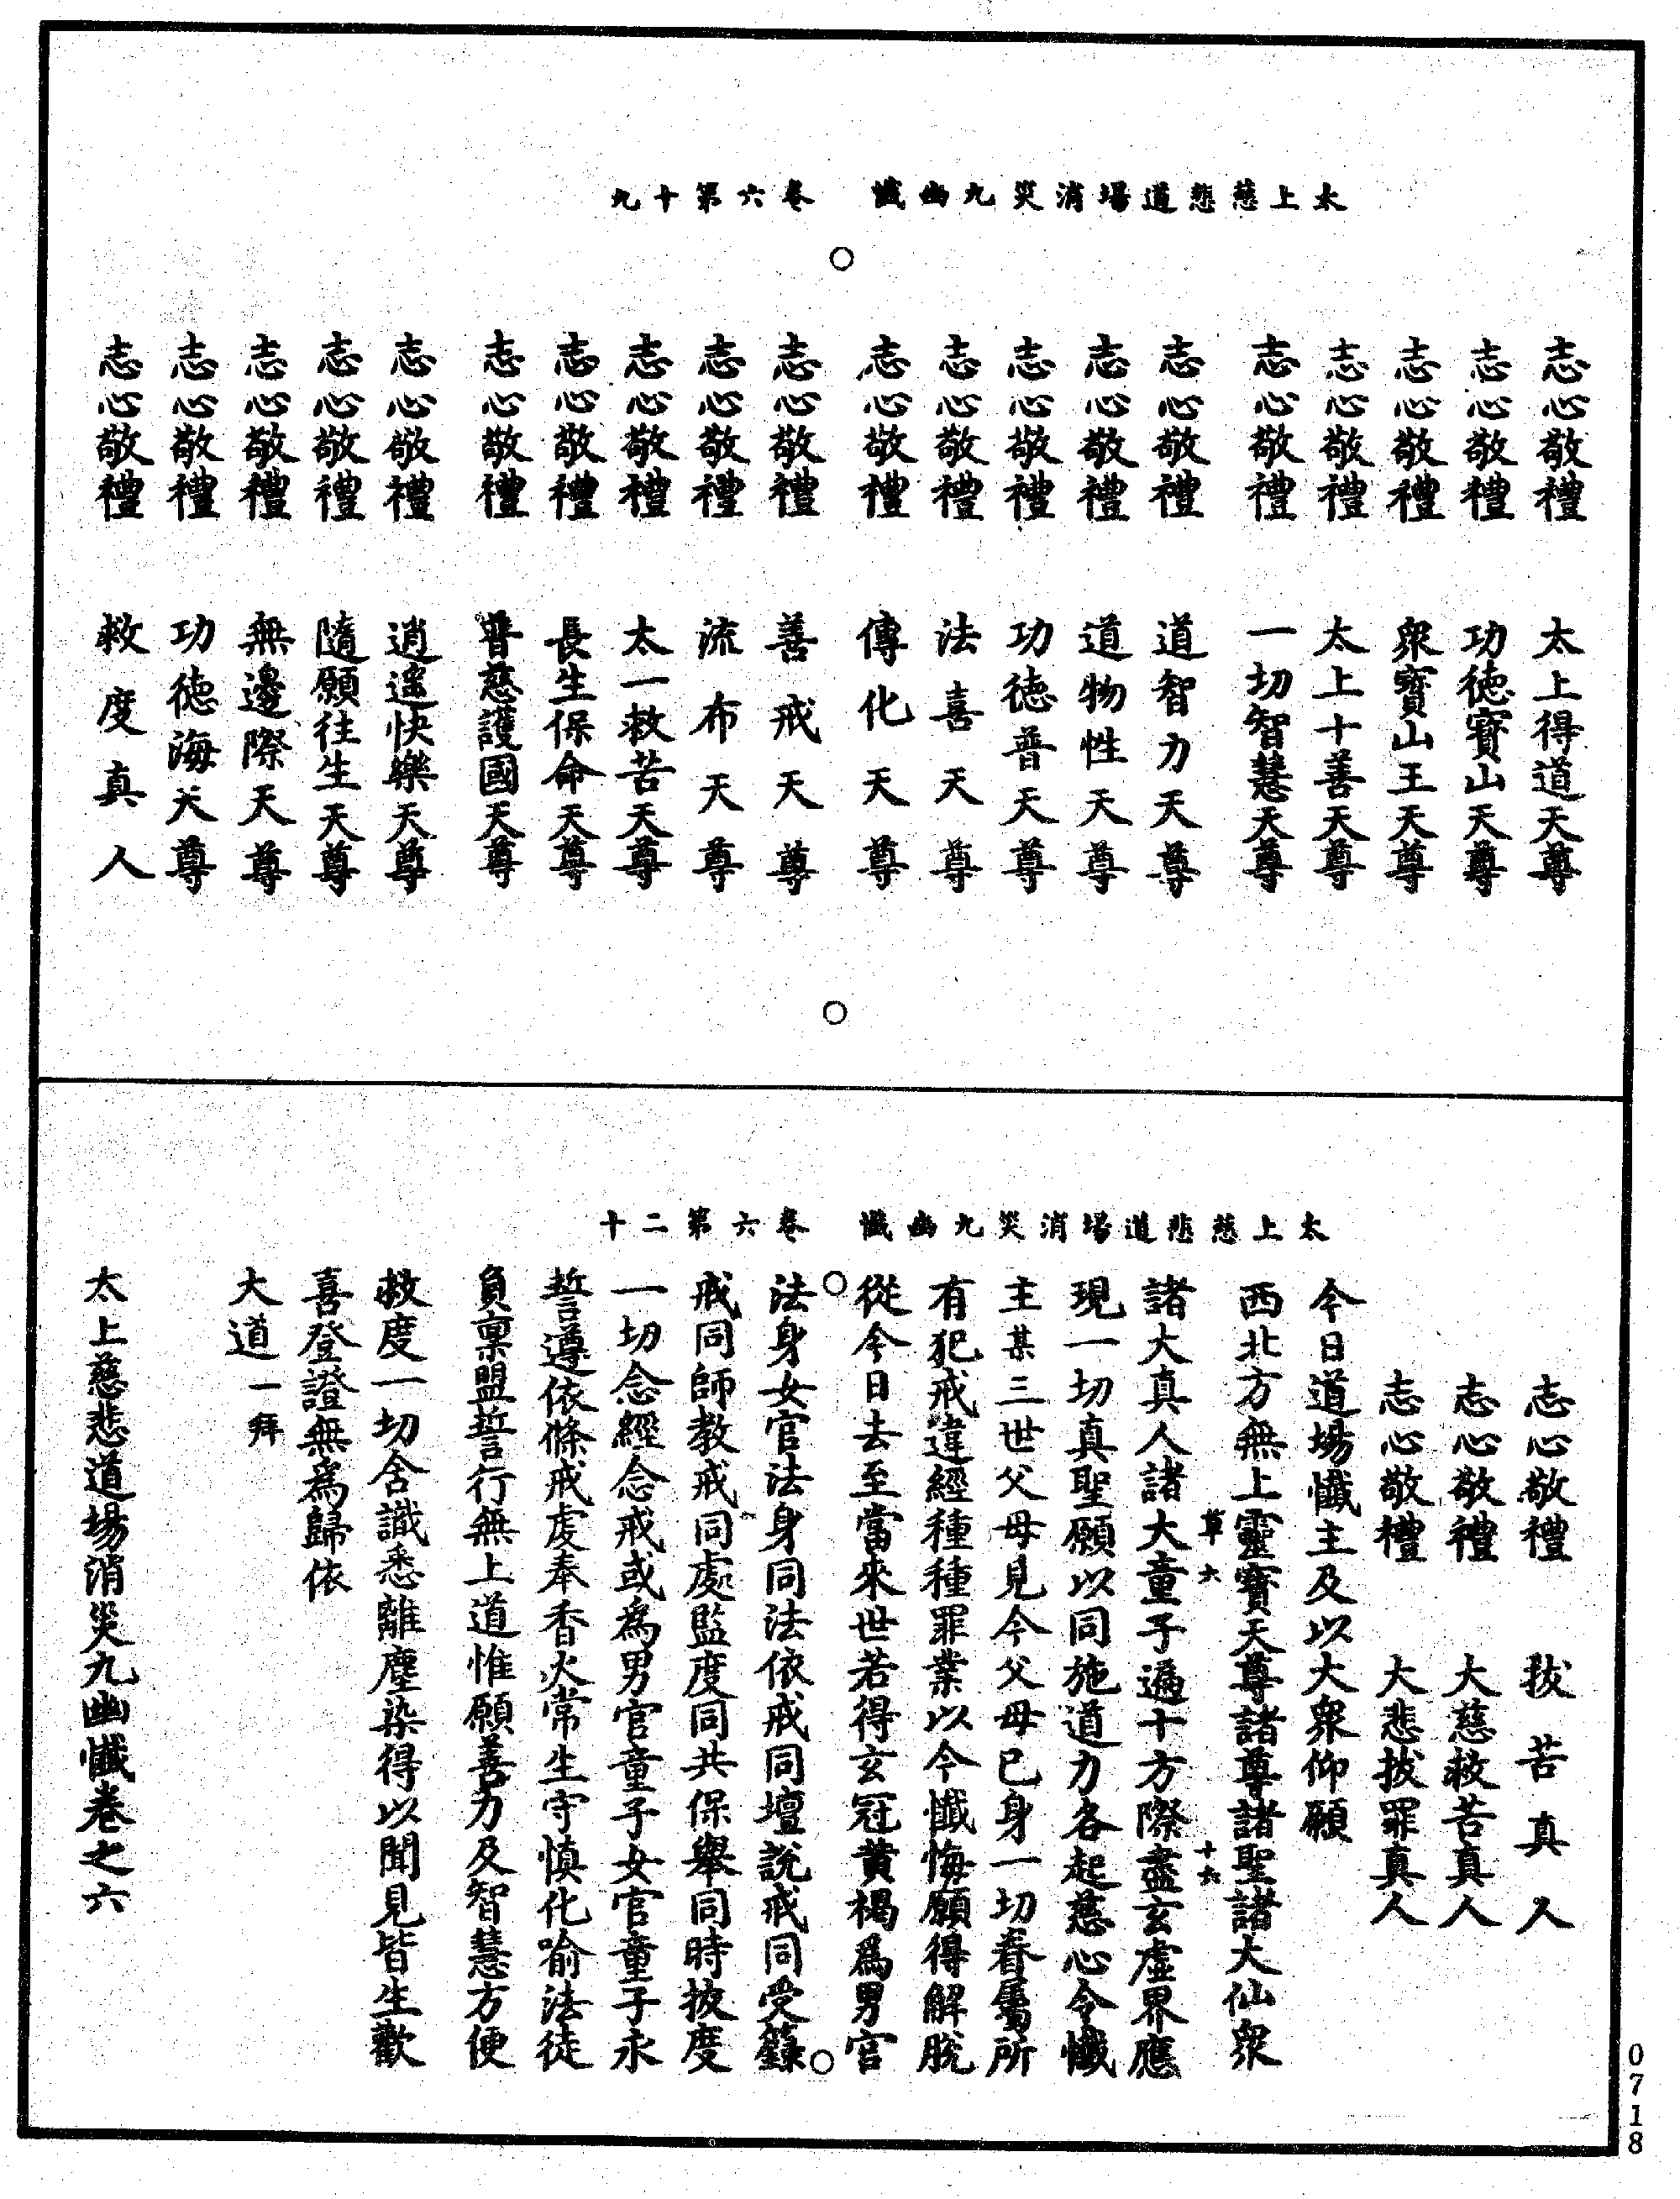 太上慈悲道場消災九幽懺　卷六第十九
志心敬禮　太上得道天尊
志心敬禮　功德寶山天尊
志心敬禮　眾寶山王天尊
志心敬禮　太上十善天尊
志心敬禮　一切智慧天尊
志心敬禮　道智力天尊
志心敬禮　道物性天尊
志心敬禮　功德普天尊
志心敬禮　法喜天尊
志心敬禮　傳化天尊
志心敬禮　善戒天尊
志心敬禮　流布天尊
志心敬禮　太一救苦天尊
志心敬禮　長生保命天尊
志心敬禮　普慈護國天尊
志心敬禮　逍遙快樂天尊
志心敬禮　隨願往生天尊
志心敬禮　無邊際天尊
志心敬禮　功德海天尊
志心敬禮　救度真人
太上慈悲道場消災九幽懺　卷六第二十
志心敬禮　拔苦真人
志心敬禮　大慈救苦真人
志心敬禮　大悲拔罪真人
今日道場懺主及以大眾仰願
西北方無上靈寶天尊諸尊諸聖諸大仙眾
草六　十六
諸大真人諸大童子遍十方際盡玄虛界應
現一切真聖願以同施道力各起慈心令懺
主某三世父母見今父母已身一切眷屬所
有犯戒違經種種罪業以今懺悔願得解脫
從今日去至當來世若得玄冠黃褐為男官
法身女官法身同法依戒同壇說戒同受籙
戒同師教戒同處監度同共保舉同時披度
一切念經念戒或為男官童子女官童子永
誓遵依條戒虔奉香火常生守慎化喻法徒
負稟盟誓行無上道惟願善力及智慧方便
救度一切含識悉離塵染得以聞見皆生歡
喜登證無為歸依
大道一拜
太上慈悲道場消災九幽懺卷之六
0718